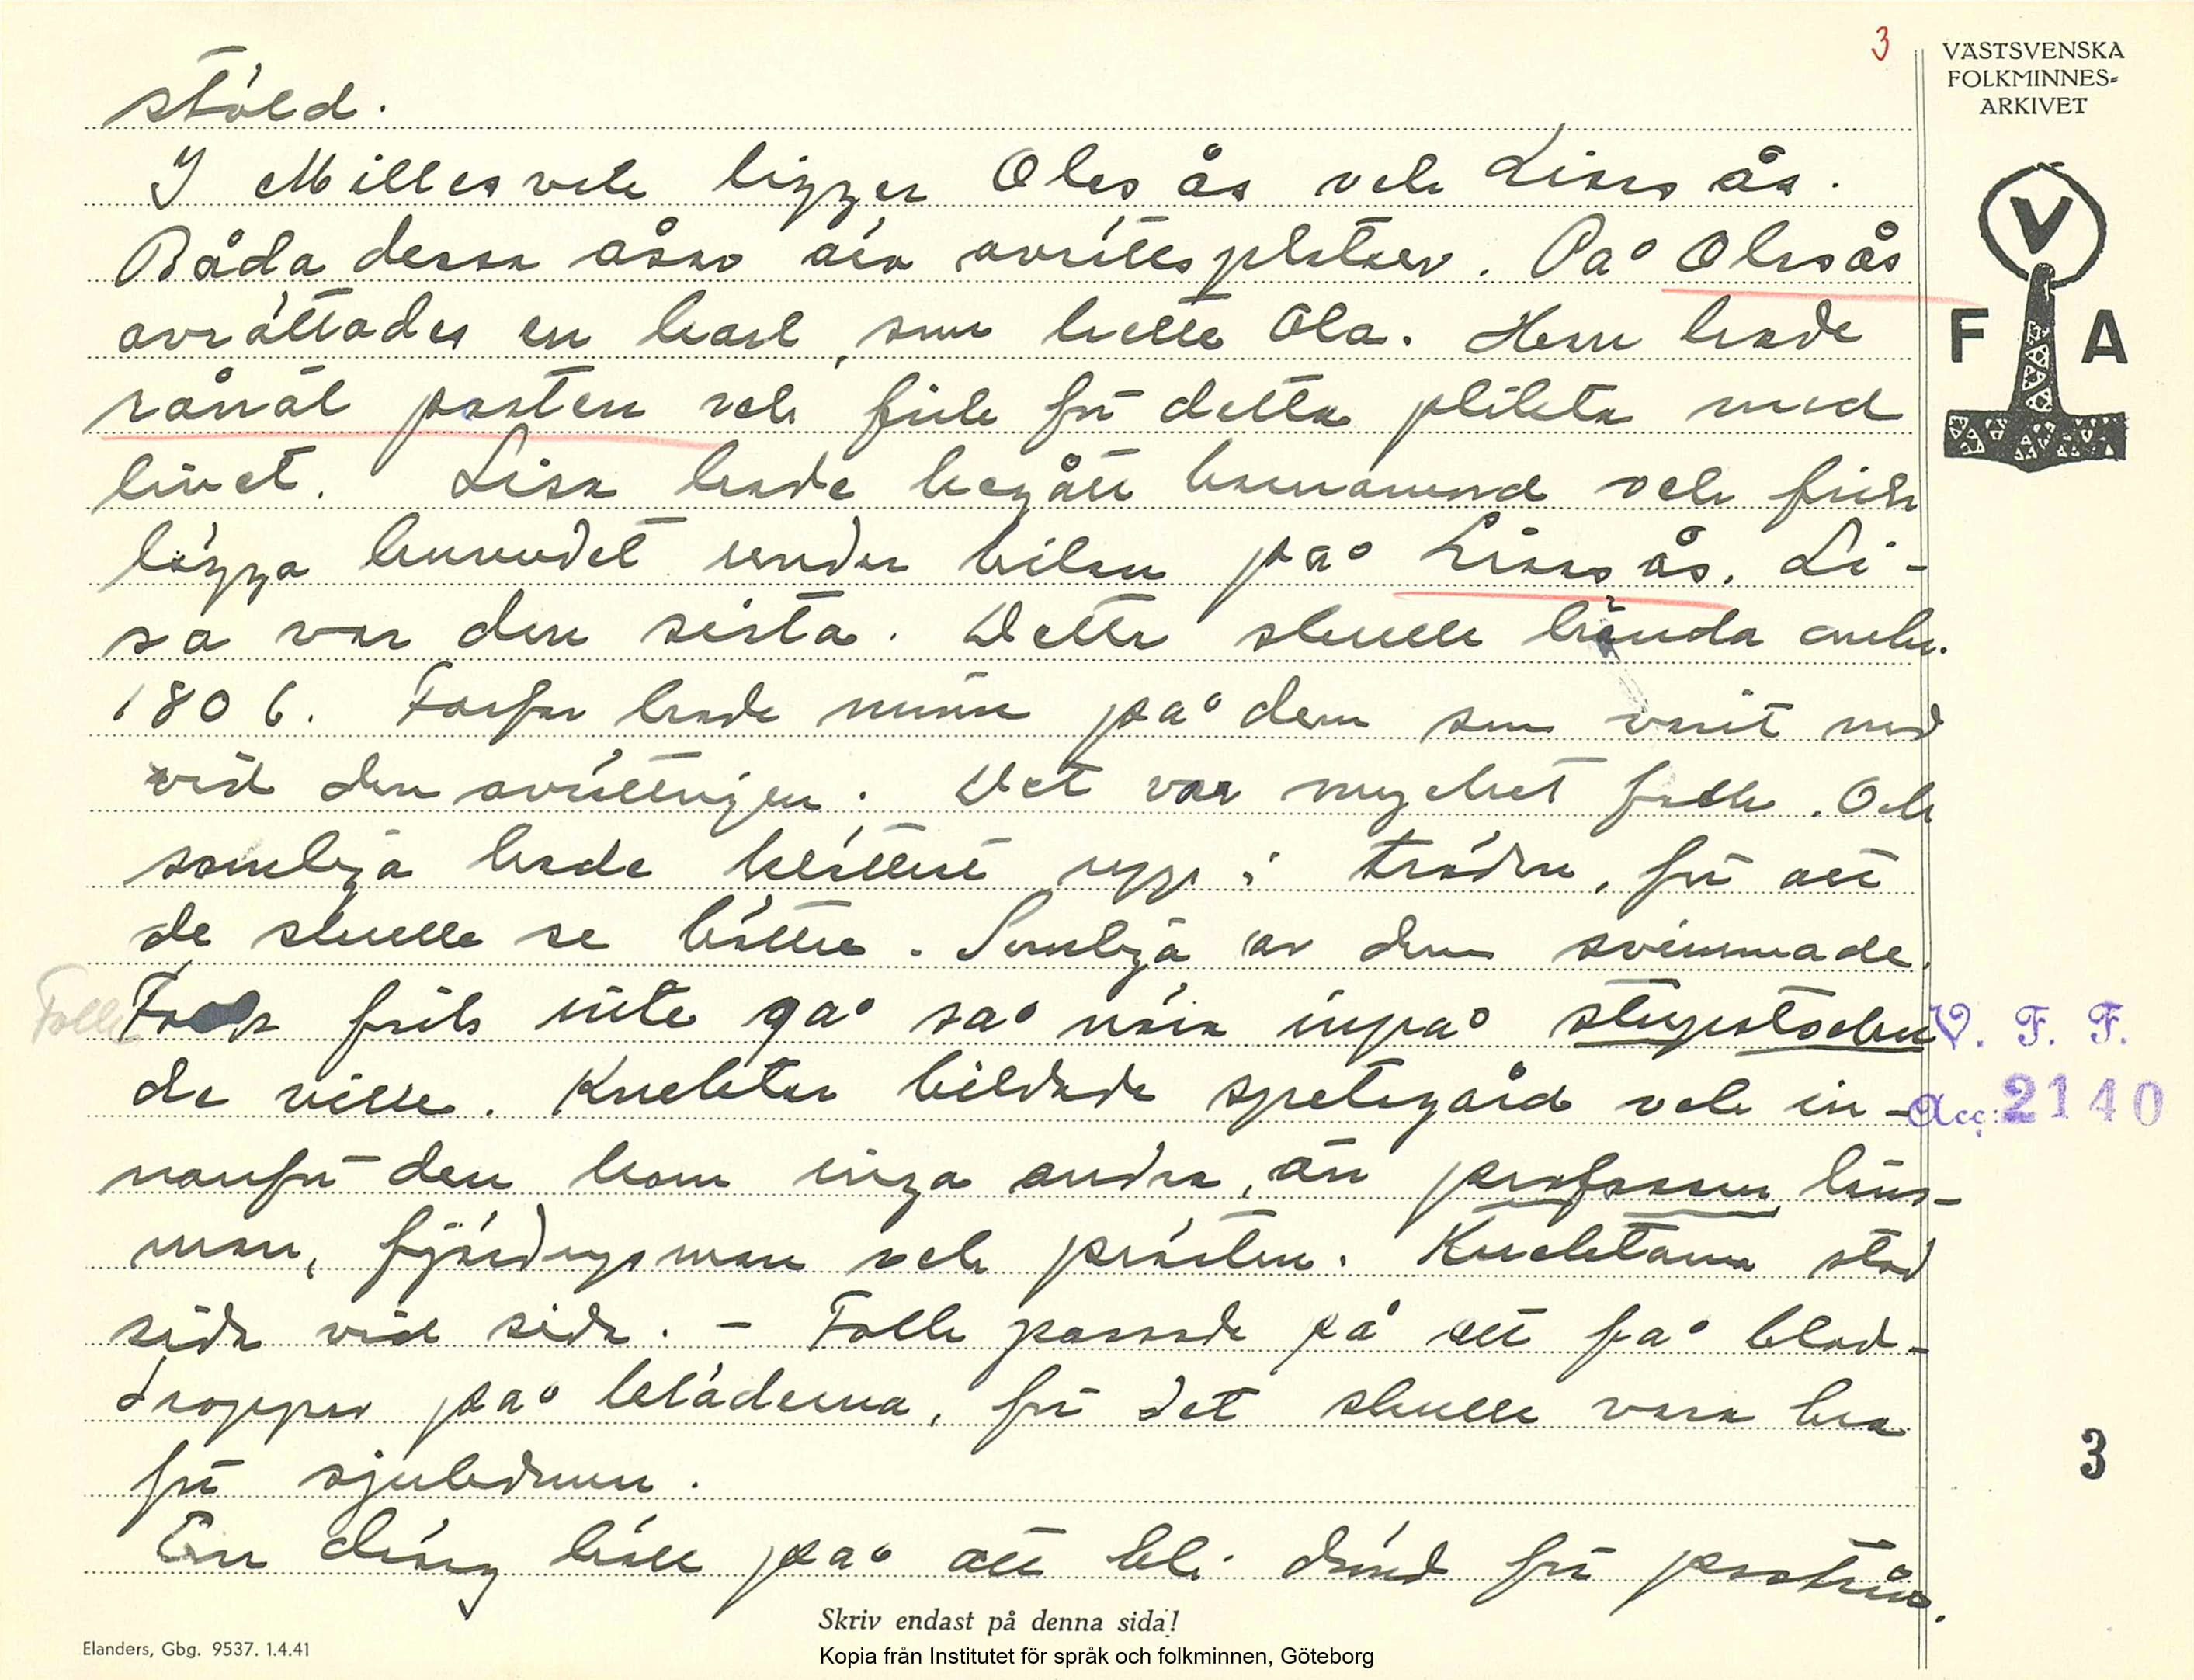 3
VÄSTSVENSKA
FOLKMINNES-
ARKIVET
V
F A
stöld.
I Millesvik ligger Oles ås och Lisas ås.
Båda dessa åsar är avrättsplatser. På Olesås
avrättades en karl, som hette Ola. Han hade
rånat posten och fick för detta plikta med
livet. Lisa hade begått barnamord och fick
lägga huvudet under bilan på Lisas ås. Li-
sa var den sista. Detta skulle hända omkr.
1806. Farfar hade minne på dem som varit med
vid den avrättningen. Det var mycket folk. Och
somliga hade klättrat upp i träden, för att
de skulle se bättre. Somliga av dem svimmade.
Folk fick inte gå så nära inpå stupstocken
de ville. Knektar bildade spetsgård och in-
nanför den kom inga andra, än profossen, läns-
man, fjärdingsman och prästen. Knektarna stod
sida vid sida. - Folk passade på att få blod-
droppar på kläderna, för det skulle vara bra
för sjukdomen.
En dräng höll på att bli dömd för poströv.
Folk
V. F. F.
Acc: 2140
3
Skriv endast på denna sida!
Elanders, Gbg. 9537. 1.4.41
Kopia från Institutet för språk och folkminnen, Göteborg